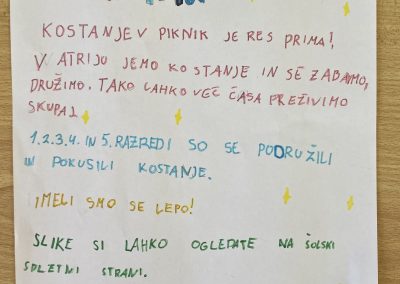 KOSTANJEV PIKNIK JE RES PRIMA!
V ATRIJU JEMO KOSTANJE IN SE ZABAVAMO,
DRUŽIMO. TAKO LAHKO VEČ ČASA PREŽIVIMO
SKUPAJ
1.2.3.4. IN 5. RAZREDI SO SE PODRUŽILI
IN POKUSILI KOSTANJE.
IMELI SMO SE LEPO!
SLIKE SI LAHKO OGLEDATE NA ŠOLSKI
SPLETNI STRANI.